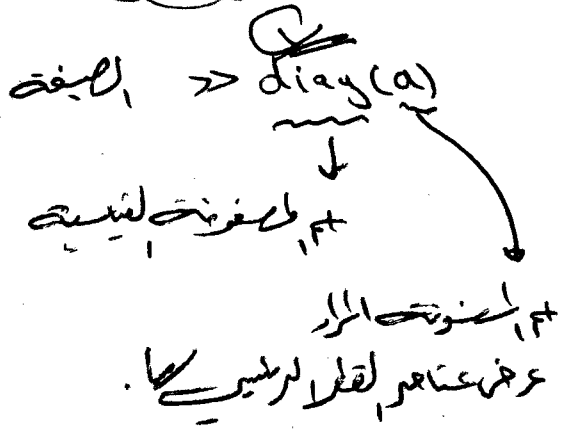 الصيغة >> diag(a)
اسم المصفوفة القياسية
اسم المصفوفة المراد
عرض عناصر القطر الرئيسي لها.